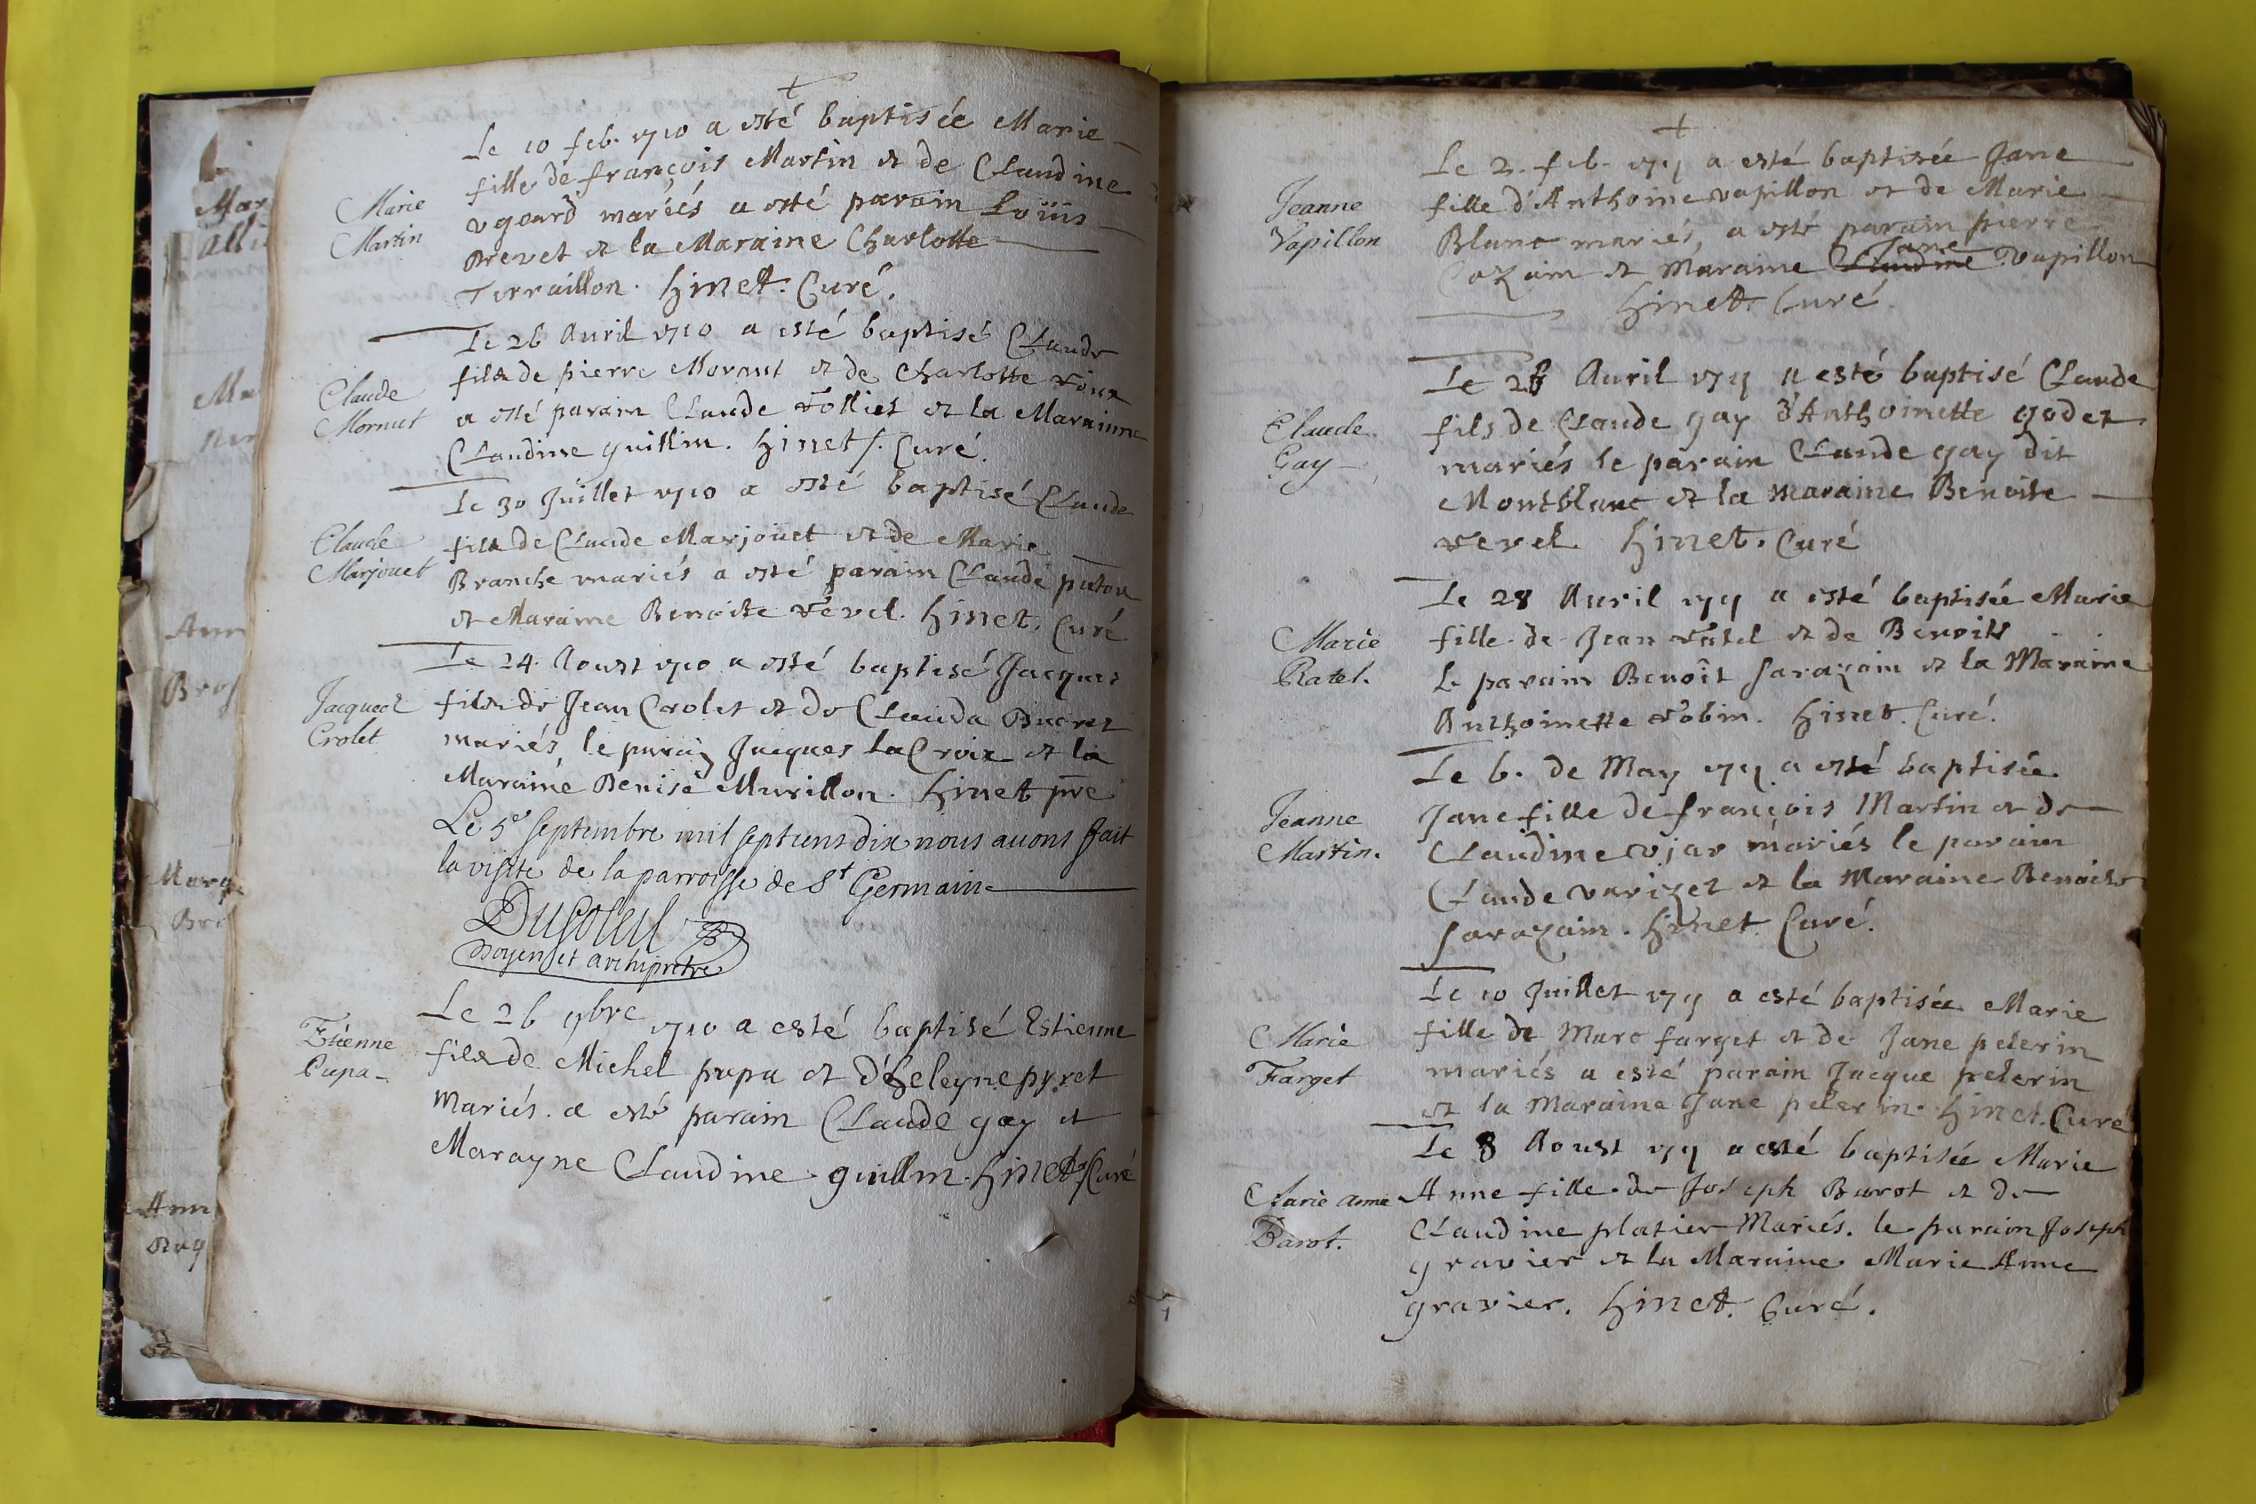 Le 10 feb. 1710 a esté baptisée Marie
fille de françois Martin et de Claudine
Marie
Martin
ugeard mariés a esté parain Loüis
Brevet et la Maraine Charlotte
Terraillon. hinet. Curé.
Le 26 Auril 1710 a esté baptisé Claude
fils de pierre Mornut et de Charlotte
Claude
Mornut
a esté parain Claude et la Maraine
Claudine guillin. hinet. Curé.
Le 30 Juillet 1710 a esté baptisé Claude
Claude
Marjouet
fils de Claude Marjoüet et de Marie
Branche mariés a esté parain Claude puton
et Maraine Benoite revel. hinet. Curé
Le 24. Aoust 1710 a esté baptisé Jacques
Jacques
Crolet
fils de Jean Crolet et de Clauda
mariés, le parain Jacques la Croix et la
Maraine Murillon. hinet pre
Le 5e septembre mil sept cens dix nous auons fait
la visite de la parroisse de St Germain
Dusoleil
Doyen et archiprêtre
Le 26 9bre 1710 a esté baptisé Estienne
Etienne
Pupa
fils de Michel pupa et d'héleyne pyret
Mariés. a esté parain Claude gay et
Marayne Claudine guillin. hinet Curé
Le 2. feb. 1711 a esté baptisée Jane
Jeanne
Vapillon
fille d'Anthoine vapillon et de Marie
Blanc mariés, a esté parain pierre
Cozain et Maraine Claudine Jane Vapillon
hinet. Curé.
Le 26 Auril 1711 a esté baptisé Claude
Claude
Gay
fils de Claude gay d'Anthoinette godet
mariés le parain Claude gay dit
Montblanc et la maraine Benoite
revel. hinet. Curé
Le 28 Auril 1711 a esté baptisée Marie
Marie
Ratel.
fille de Jean ratel et de Benoite
le parain Benoît sarazain et la Maraine
Anthoinette robin. hinet. Curé.
Le 6. de May 1711 a esté baptisée
Jeanne
Martin.
Jane fille de françois Martin et de
Claudine ujar mariés le parain
Claude varizet et la Maraine Benoite
sarazain. hinet Curé.
Le 10 Juillet 1711 a esté baptisée Marie
Marie
Farget
fille de Marc farget et de Jane pelerin
mariés a esté parain Jacque pelerin
et la Maraine Jane pelerin. hinet. Curé
Le 8 Aoust 1711 a esté baptisée Marie
Marie anne
Barot.
Anne fille de Joseph Barot et de
Claudine platier Mariés. le parain Joseph
gravier et la Maraine Marie Anne
gravier. hinet. Curé.